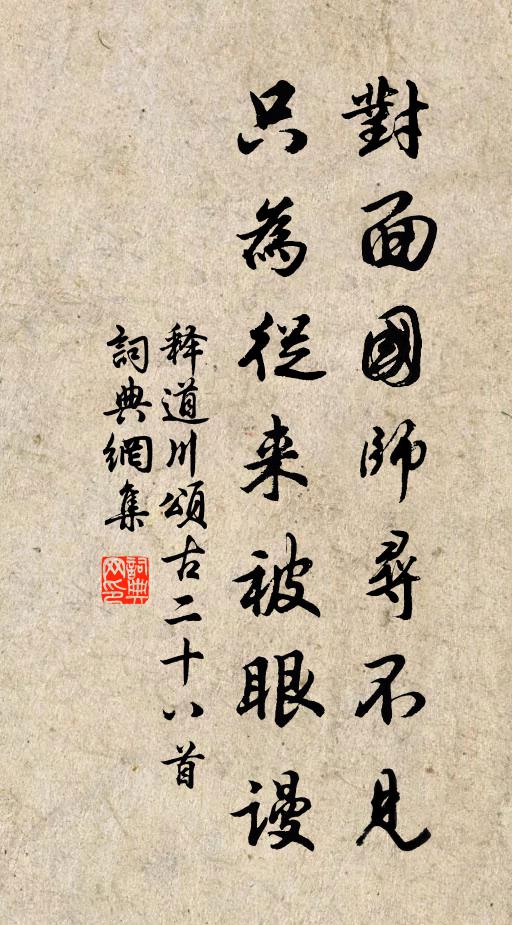 對面國師尋不見
只為從来被眼謾
释道川頌古二十八首
詞典網集
詞典網印